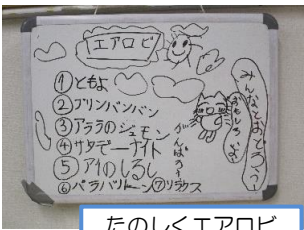 エアロビ
①ともよ
②プリンバンバン
③アララのジュモン
④サタデーナイト
⑤アイのしるし
⑥パラバリトーン⑦リラックス
がんばろう
みんなでおどろう!
たのしくエアロビ